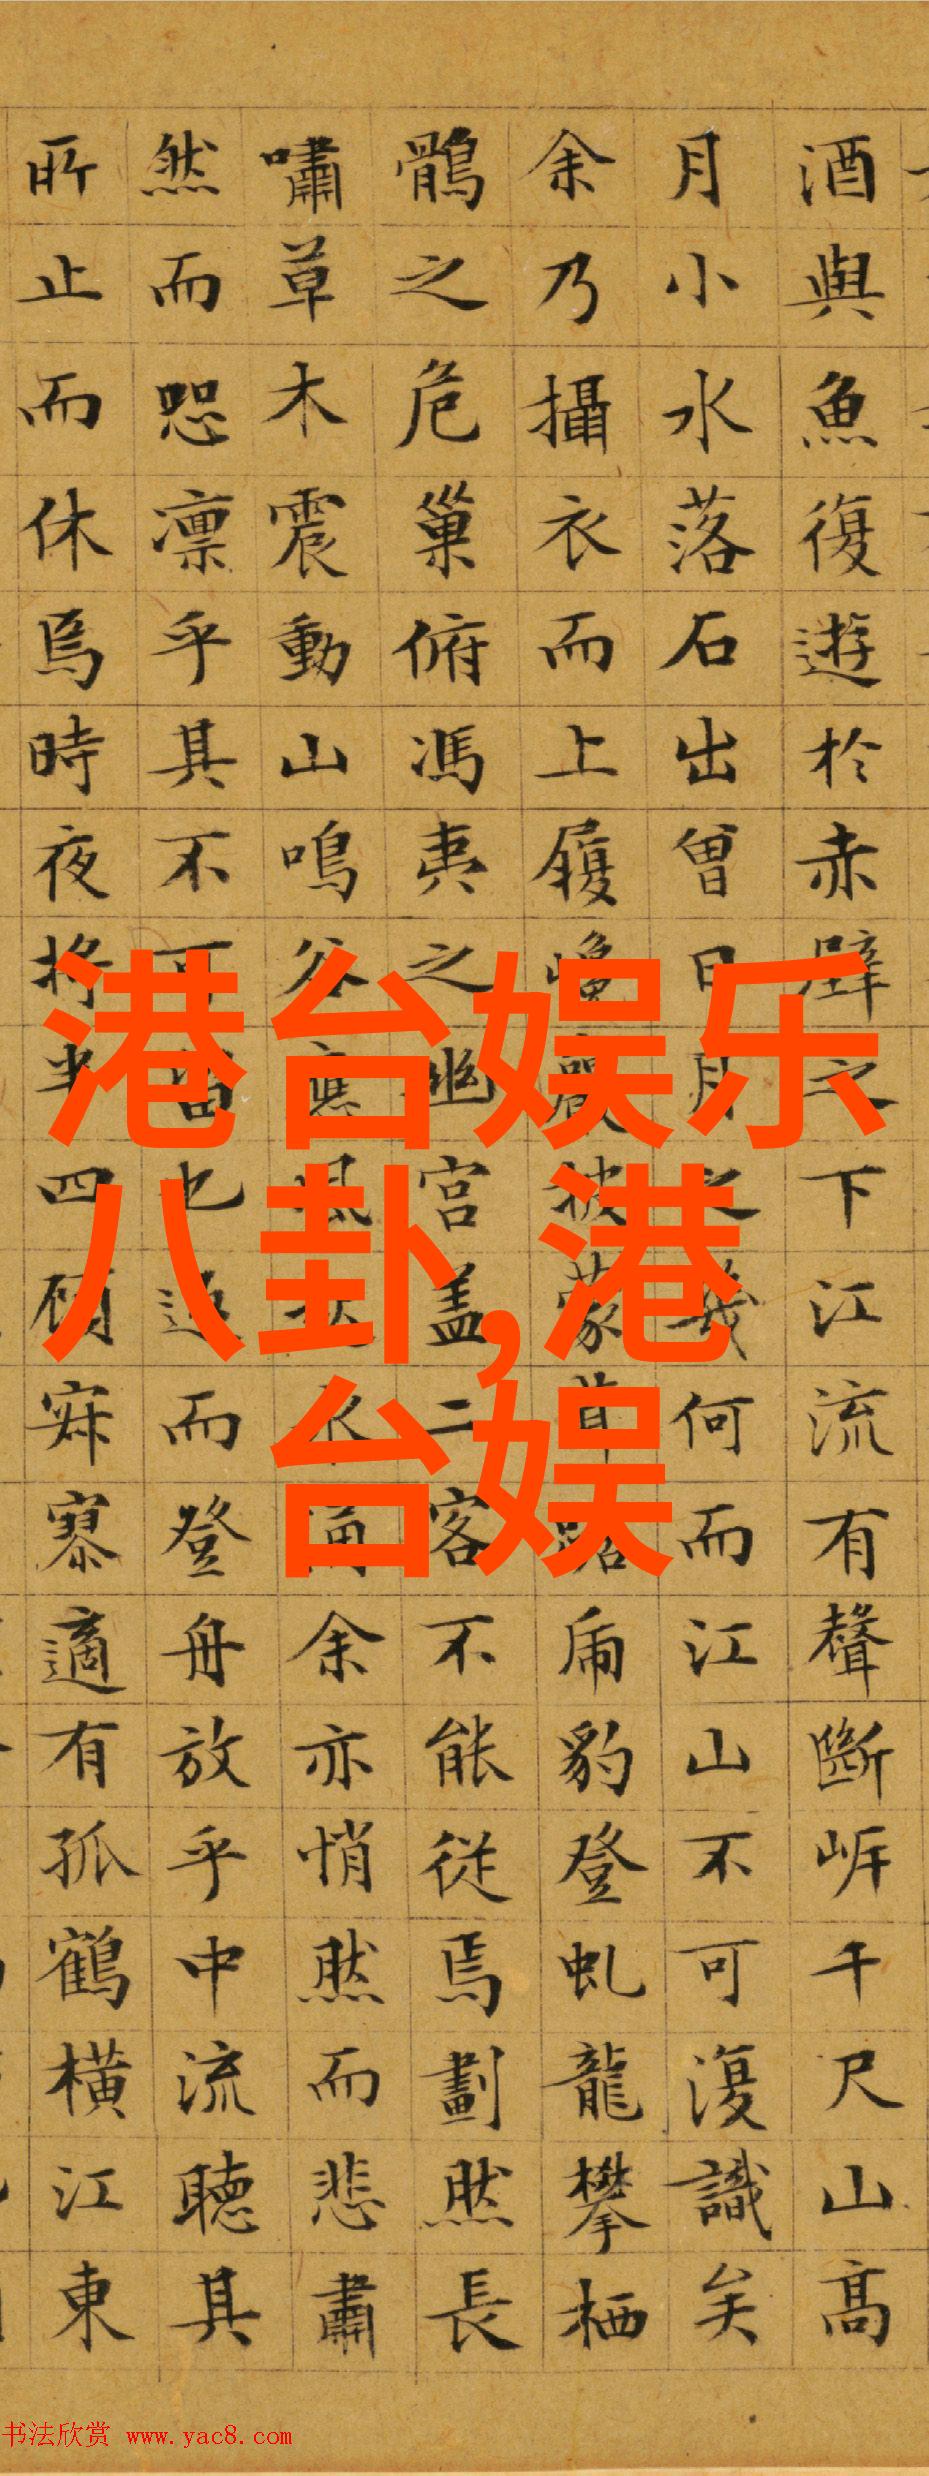 酒與魚復遊於赤壁之下江流有聲斷岸千尺山高
月小水落石出曾日月之幾何而江山不可復識矣
余乃攝衣而上履巉巖披蒙茸踞虎豹登虬龍攀栖
鶻之危巢俯馮夷之幽宮盖二客不能從焉劃然長
嘯草木震動山鳴谷應風水涌余亦悄然而悲肅
然而恐凛乎其不可留也返而登舟放乎中流聽其
所止而休焉時夜將半四顧寂寥適有孤鶴橫江東
港台娱乐
八卦,港
台娱
书法欣赏 www.yac8.com